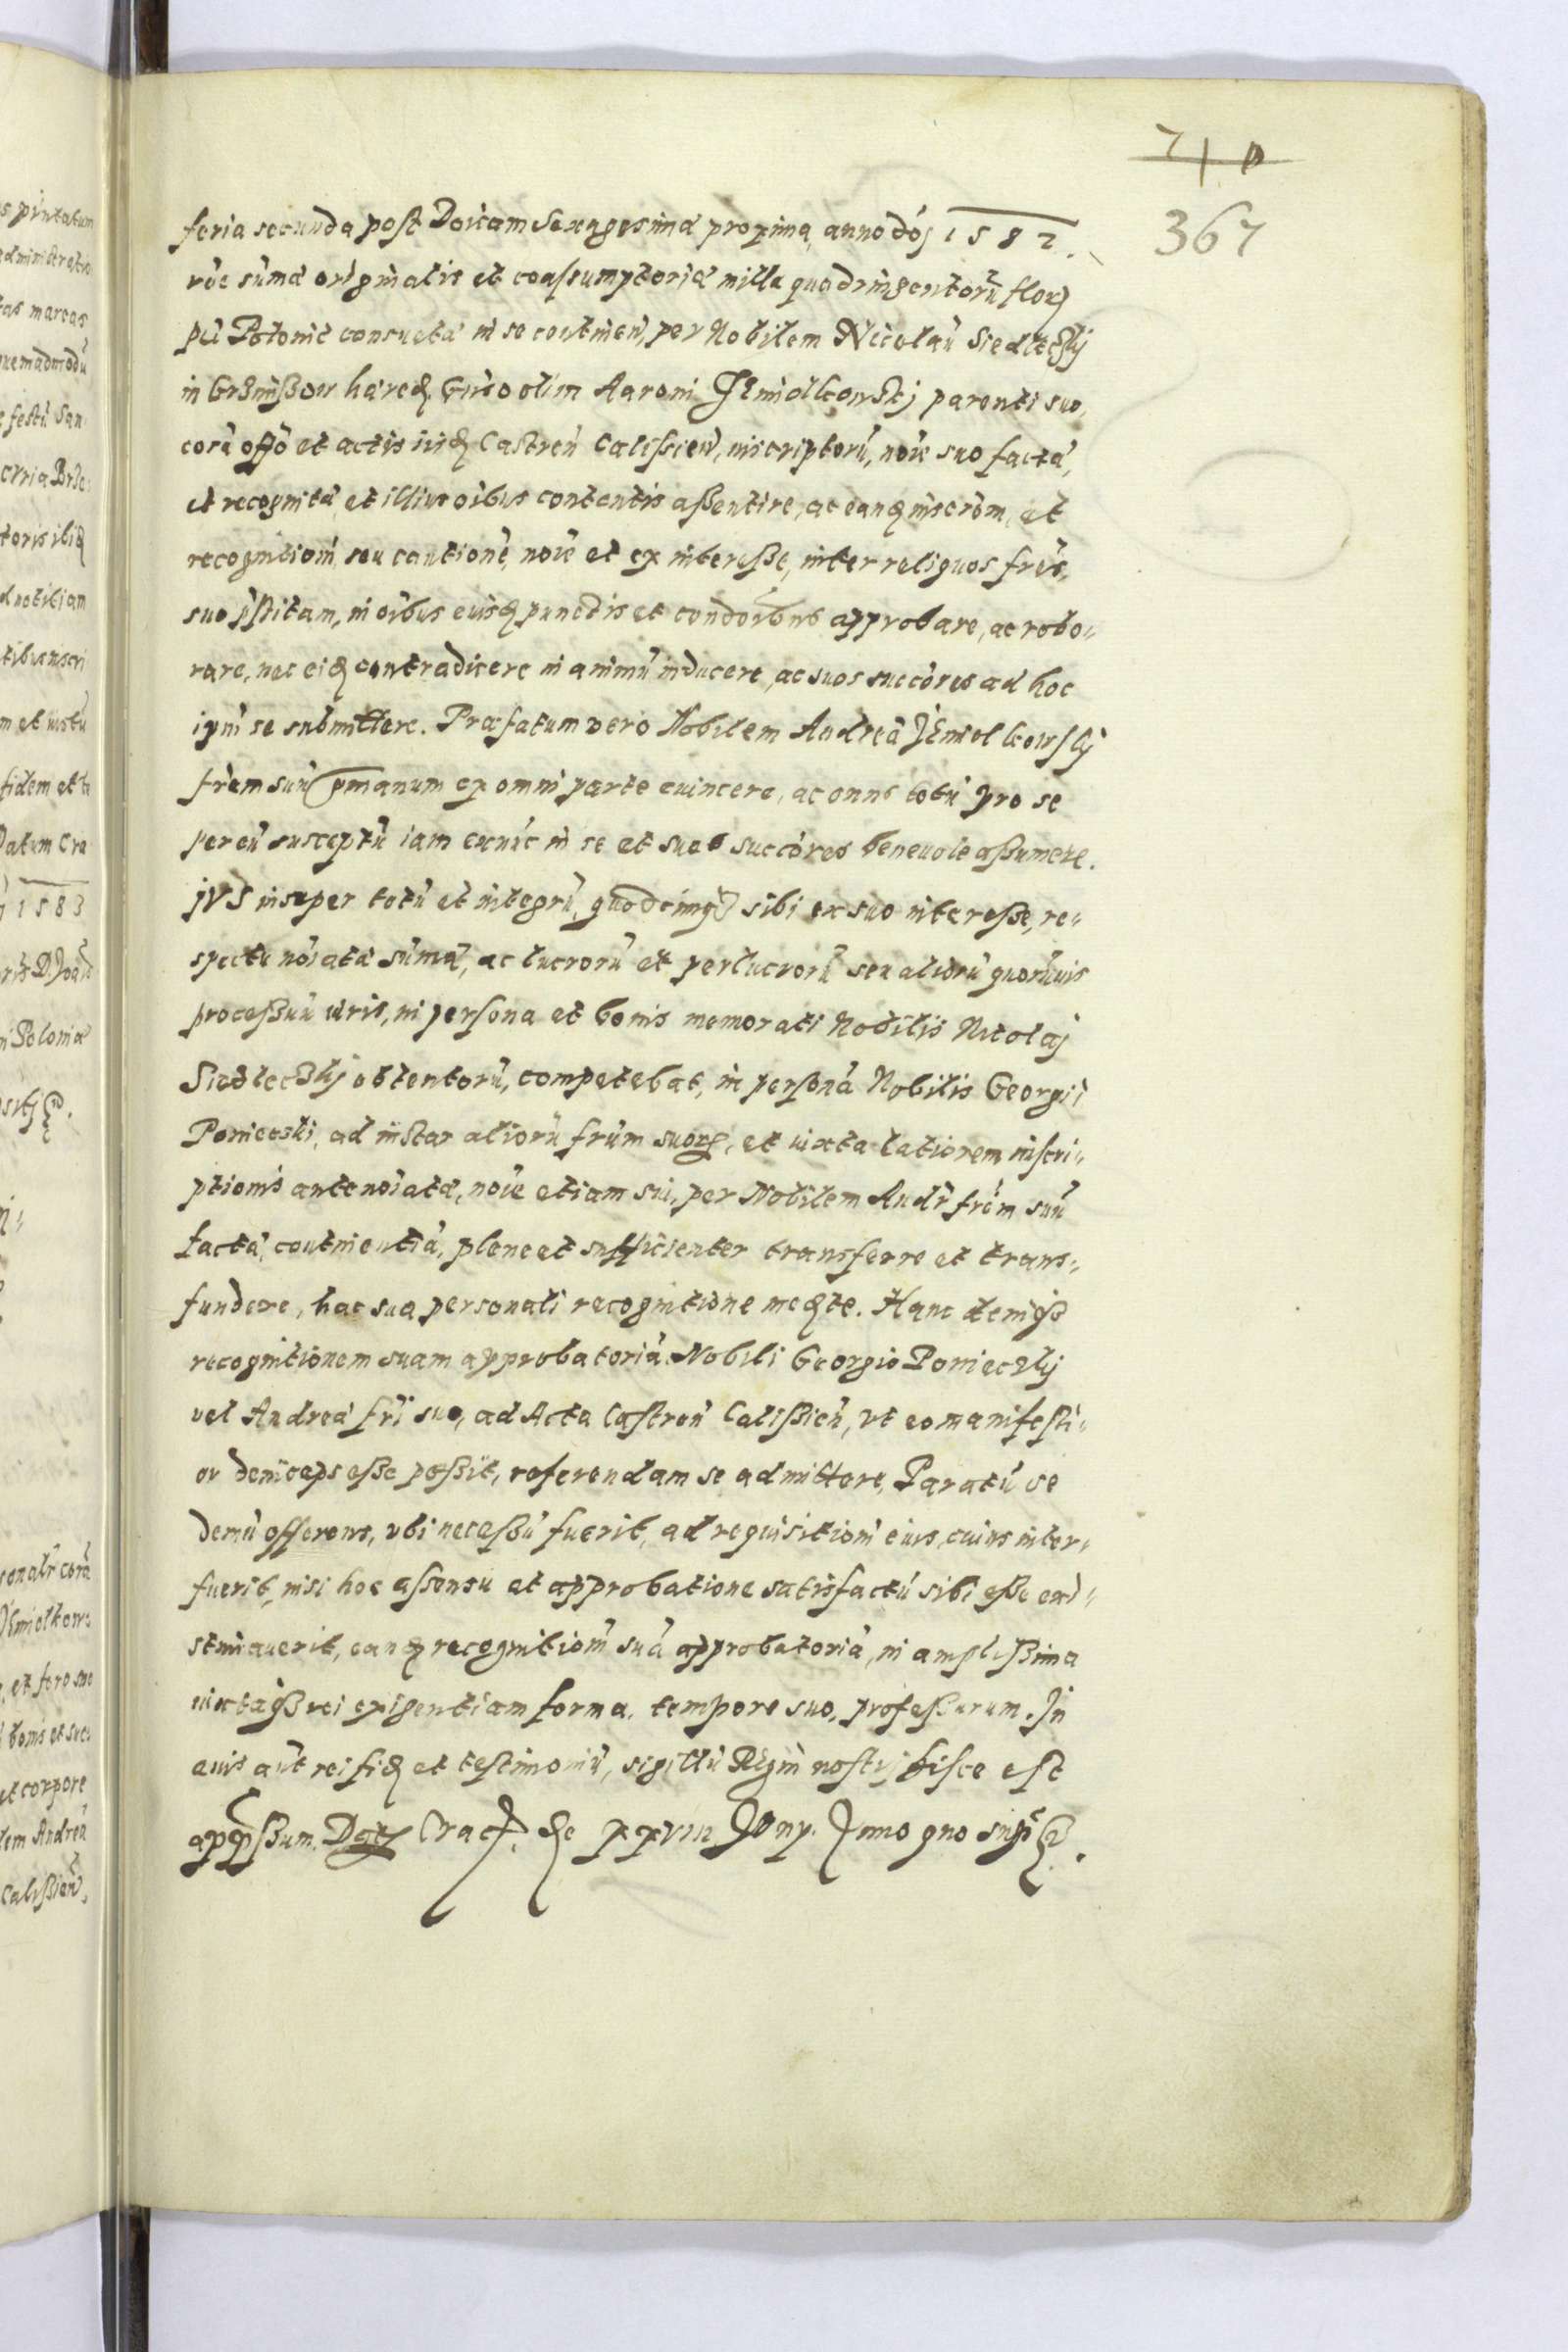 710
367
feria secunda post Doĩcam Sexagesimã proxima, anno dói 1582.
rõe sũmæ originalis et coassumptoriæ mille quadringentorũ flor
pũ Poloniæ consuetã in se continen̄, per Nobilem Nicolaũ Siedleczkij
in hæred. Gñso olim Aaroni Jemiolkowskj parenti suo,
corã offõ et actis iisd Castreñ Calissień, inscriptorũ, nõie suo factã,
et recognitã, et illius oĩbus contentis aßentire, ac eandē inscrõm, et
recognitioñ, seu cautionẽ, nõie et ex intereße, inter reliquos frēs,
suo pstitam, in oĩbus euisd punctis et condoĩbus approbare, ac robo„
rare, nec eid contradicere in animũ inducere, ac suos succóres ad hoc
ipm̃ se submittere. Præfatum vero Nobilem Andreã Jemiolkowskj
frẽm suũ germanum ex omni parte euincere, ac onus totũ pro se
per eũ susceptũ iam exnũc in se et suos succóres beneuole aßumere.
jVS insuper totũ et integrũ, quodcũnq sibi ex suo intereße, re„
spectu nõiatæ sũmæ, ac lucrorũ et perlucrorũ seu aliorũ quorũuis
proceßuũ iuris, in persona et bonis memorati Nobilis Nicolaj
Siedleczkij obtentorũ, competebat, in personã Nobilis Georgii
Ponieczki, ad instar aliorũ frũm suorȝ, et iuxta latiorem inscri„
ptionis antenõiatæ, nõie etiam sui, per Nobilem Andr̃ frẽm suũ
factæ, continentiã, plene et sufficienter transferre et trans„
fundere, hac sua personali recognitione medte. Hanc deniqȝ
recognitionem suam approbatoriã Nobili Georgio Ponieczkij
vel Andreæ frĩ suo, ad Acta Castreñ Calißień, vt eo manifesti„
or deinceps eße poßit, referendam se admittere, Paratũ se
demũ offerens, vbi neceßũ fuerit, ad requisitioñ eius, cuius inter„
fuerit, nisi hoc assensu et approbatione satisfactũ sibi eße exi„
stimauerit, eand recognitioñ suã approbatoriã, in amplißima
iuxtaqȝ rei exigentiam forma, tempore suo, profeßurum. In
cuius aũt rei fid et testimoniũ, sigillũ Regni nostrj hisce est
appreßum. Datȝ Crac. de xxviii Jany. Anno quo supra.